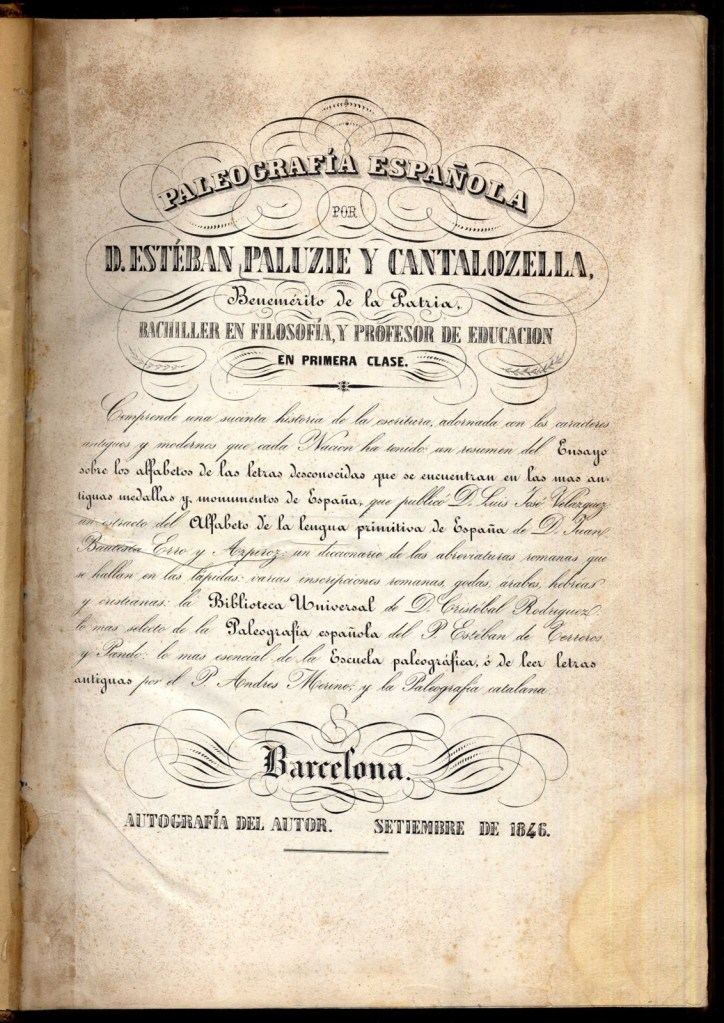 PALEOGRAFÍA ESPAÑOLA
POR
D. ESTÉBAN PALUZIE Y CANTALOZELLA,
Benemérito de la Patria,
BACHILLER EN FILOSOFÍA, Y PROFESOR DE EDUCACION
EN PRIMERA CLASE.
Comprende una sucinta historia de la escritura, adornada con los caracteres
antiguos y modernos que cada Nacion ha tenido: un resumen del Ensayo
sobre los alfabetos de las letras desconocidas que se encuentran en las mas an-
tiguas medallas y monumentos de España, que publicó D. Luis José Velazquez:
un estracto del Alfabeto de la lengua primitiva de España de D. Juan
Bautista Erro y Azpiroz: un diccionario de las abreviaturas romanas que
se hallan en las lápidas: varias inscripciones romanas, godas, arabes, hebréas
y cristianas: la Biblioteca Universal de D. Cristobal Rodriguez:
lo mas selecto de la Paleografía española del P. Estéban de Terreros
y Pando: lo mas esencial de la Escuela paleográfica, ó de leer letras
antiguas por el P. Andres Merino; y la Paleografía catalana.
Barcelona.
AUTOGRAFÍA DEL AUTOR. SETIEMBRE DE 1846.